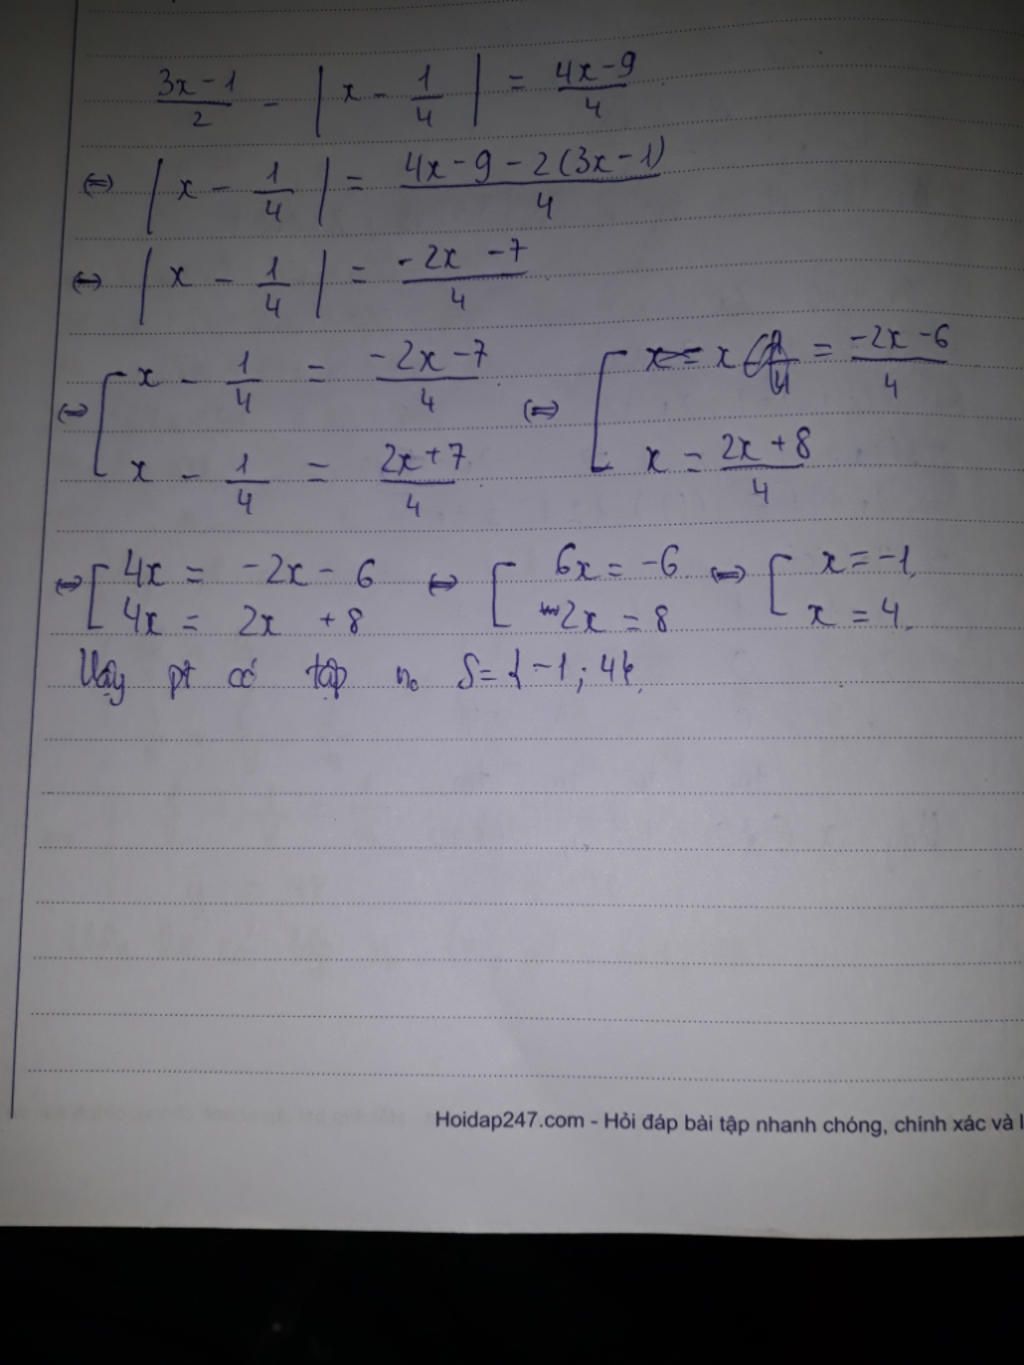 3x-1/2 - |x - 1/4| = 4x-9/4
⇔ |x - 1/4| = 4x-9-2(3x-1)/4
⇔ |x - 1/4| = -2x-7/4
⇔ [x - 1/4 = -2x-7/4 ⇔ [x = -2x-6/4
x - 1/4 = 2x+7/4 x = 2x+8/4
⇔ [4x = -2x-6 ⇔ [6x = -6 ⇔ [x = -1
4x = 2x+8 2x = 8 x = 4.
Vậy pt có tập n₀ S={-1;4}.
Hoidap247.com - Hỏi đáp bài tập nhanh chóng, chính xác và